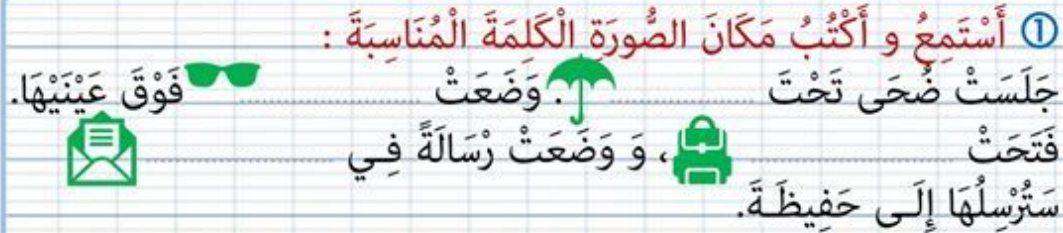 ① أَسْتَمِعُ و أَكْتُبُ مَكَانَ الصُّورَةِ الْكَلِمَةَ الْمُنَاسِبَةَ :
جَلَسَتْ ضُحَى تَحْتَ .................. . وَضَعَتْ .................. فَوْقَ عَيْنَيْهَا.
فَتَحَتْ .................. ، وَ وَضَعَتْ رْسَالَةً فِي ..................
سَتُرْسِلُهَا إِلَى حَفِيظَةَ.